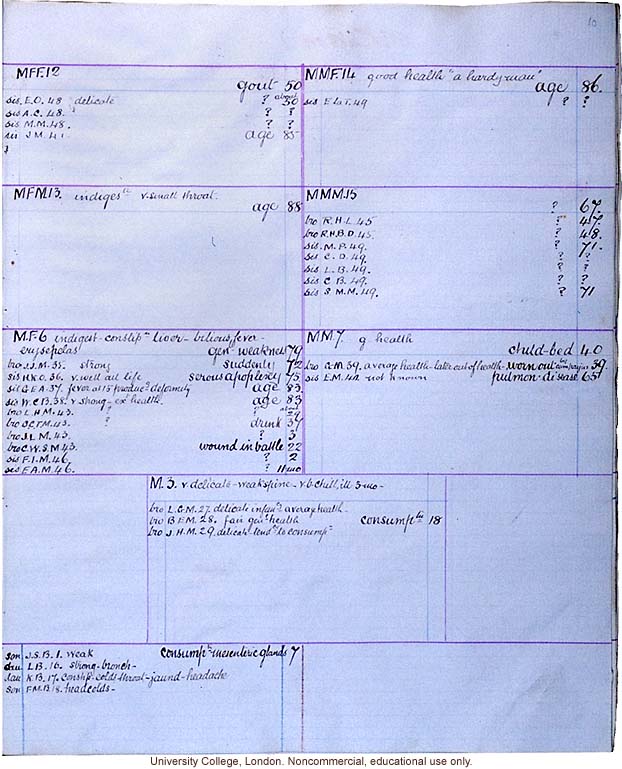 10
MFF.12
gout 50
sis. E.O. 48 delicate ? about 50
sis A.C. 48. ? ?
sis M.M. 48. ? ?
J.M. 41. age 85
MMF.14 good health "a hardy man"
age 86.
sis E. 49 ? ?
MFM.13. indigest v. small throat.
age 88
MMM.15
? 67
bro R.H.L. 45 ? 47.
bro R.H.B.D. 45. ? 48.
sis. M.P. 49. ? 71.
sis. C.D. 49. ? ?
sis. L.B. 49. ? ?
sis C.B. 49. ? ?
sis. S.M.M. 49. ? 71
MF.6 indigest-constipn liver-bilious, fever-
erysepolas gen-weakness 79
bro. J.J.M. 35. strong suddenly 72
sis H.K.O. 36. v. well all life serous apoplexy 75
sis G.E.A. 37. fever at 15 produced deformity age 83.
sis W.C.B. 38. v strong-ex health age 83
bro L.H.M. 43. ? ?
bro M. 43. ? drink 37
bro J.L.M. 43. ? 3
bro C.W.S.M. 43. wound in battle 22
sis F.I.M. 46. ? 2
sis E.A.M. 46. ? 11 mo
MM.7. g health
child-bed 40
bro G.M. 39. average health-later out of health-worn out by 39.
sis E.M. 42. not known pulmon-disease 65
M.3. v delicate-weak spine-v b chill, ill 3-mo-
bro L.G.M. 27. delicate infancy average health-
bro B.F.M. 28. fair genl health consumptn 18
bro J.H.M. 29. delicate tendcy to consumptn
son J.S.B. 1. weak consumptn mesenteric glands 7
dau L.B. 16. strong-bronch-
dau K.B. 17. constip-colds throat-jaund-headache
son F.M.B. 18. head colds-
University College, London. Noncommercial, educational use only.